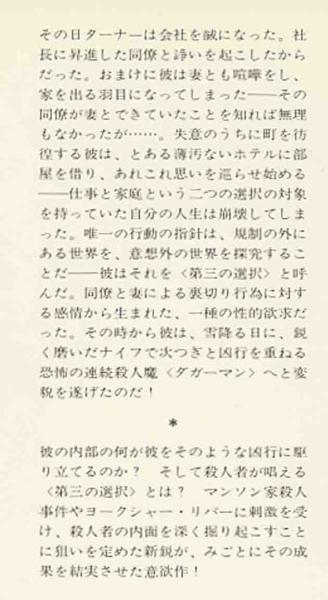 その日ターナーは会社を馘になった。社
長に昇進した同僚と諍いを起こしたから
だった。おまけに彼は妻とも喧嘩をし、
家を出る羽目になってしまった――その
同僚が妻とできていたことを知れば無理
もなかったが……。失意のうちに町を彷
徨する彼は、とある薄汚ないホテルに部
屋を借り、あれこれ思いを巡らせ始める
――仕事と家庭という二つの選択の対象
を持っていた自分の人生は崩壊してしま
った。唯一の行動の指針は、規制の外に
ある世界を、意想外の世界を探究するこ
とだ――彼はそれを〈第三の選択〉と呼
んだ。同僚と妻による裏切り行為に対す
る感情から生まれた、一種の性的欲求だ
った。その時から彼は、雪降る日に、鋭
く磨いだナイフで次つぎと凶行を重ねる
恐怖の連続殺人魔〈ダガーマン〉へと変
貌を遂げたのだ！
＊
彼の内部の何が彼をそのような凶行に駆
り立てるのか？　そして殺人者が唱える
〈第三の選択〉とは？　マンソン家殺人
事件やヨークシャー・リパーに刺激を受
け、殺人者の内面を深く掘り起こすこと
に狙いを定めた新鋭が、みごとにその成
果を結実させた意欲作！